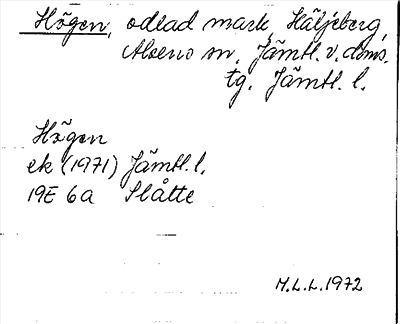 Högen, odlad mark, Häljeberg,
Alsens sn, Jämtl. v. doms.
tg. Jämtl. l.
Högen
ek (1971) Jämtl. l.
19E 6a Slåtte
M.L.L. 1972